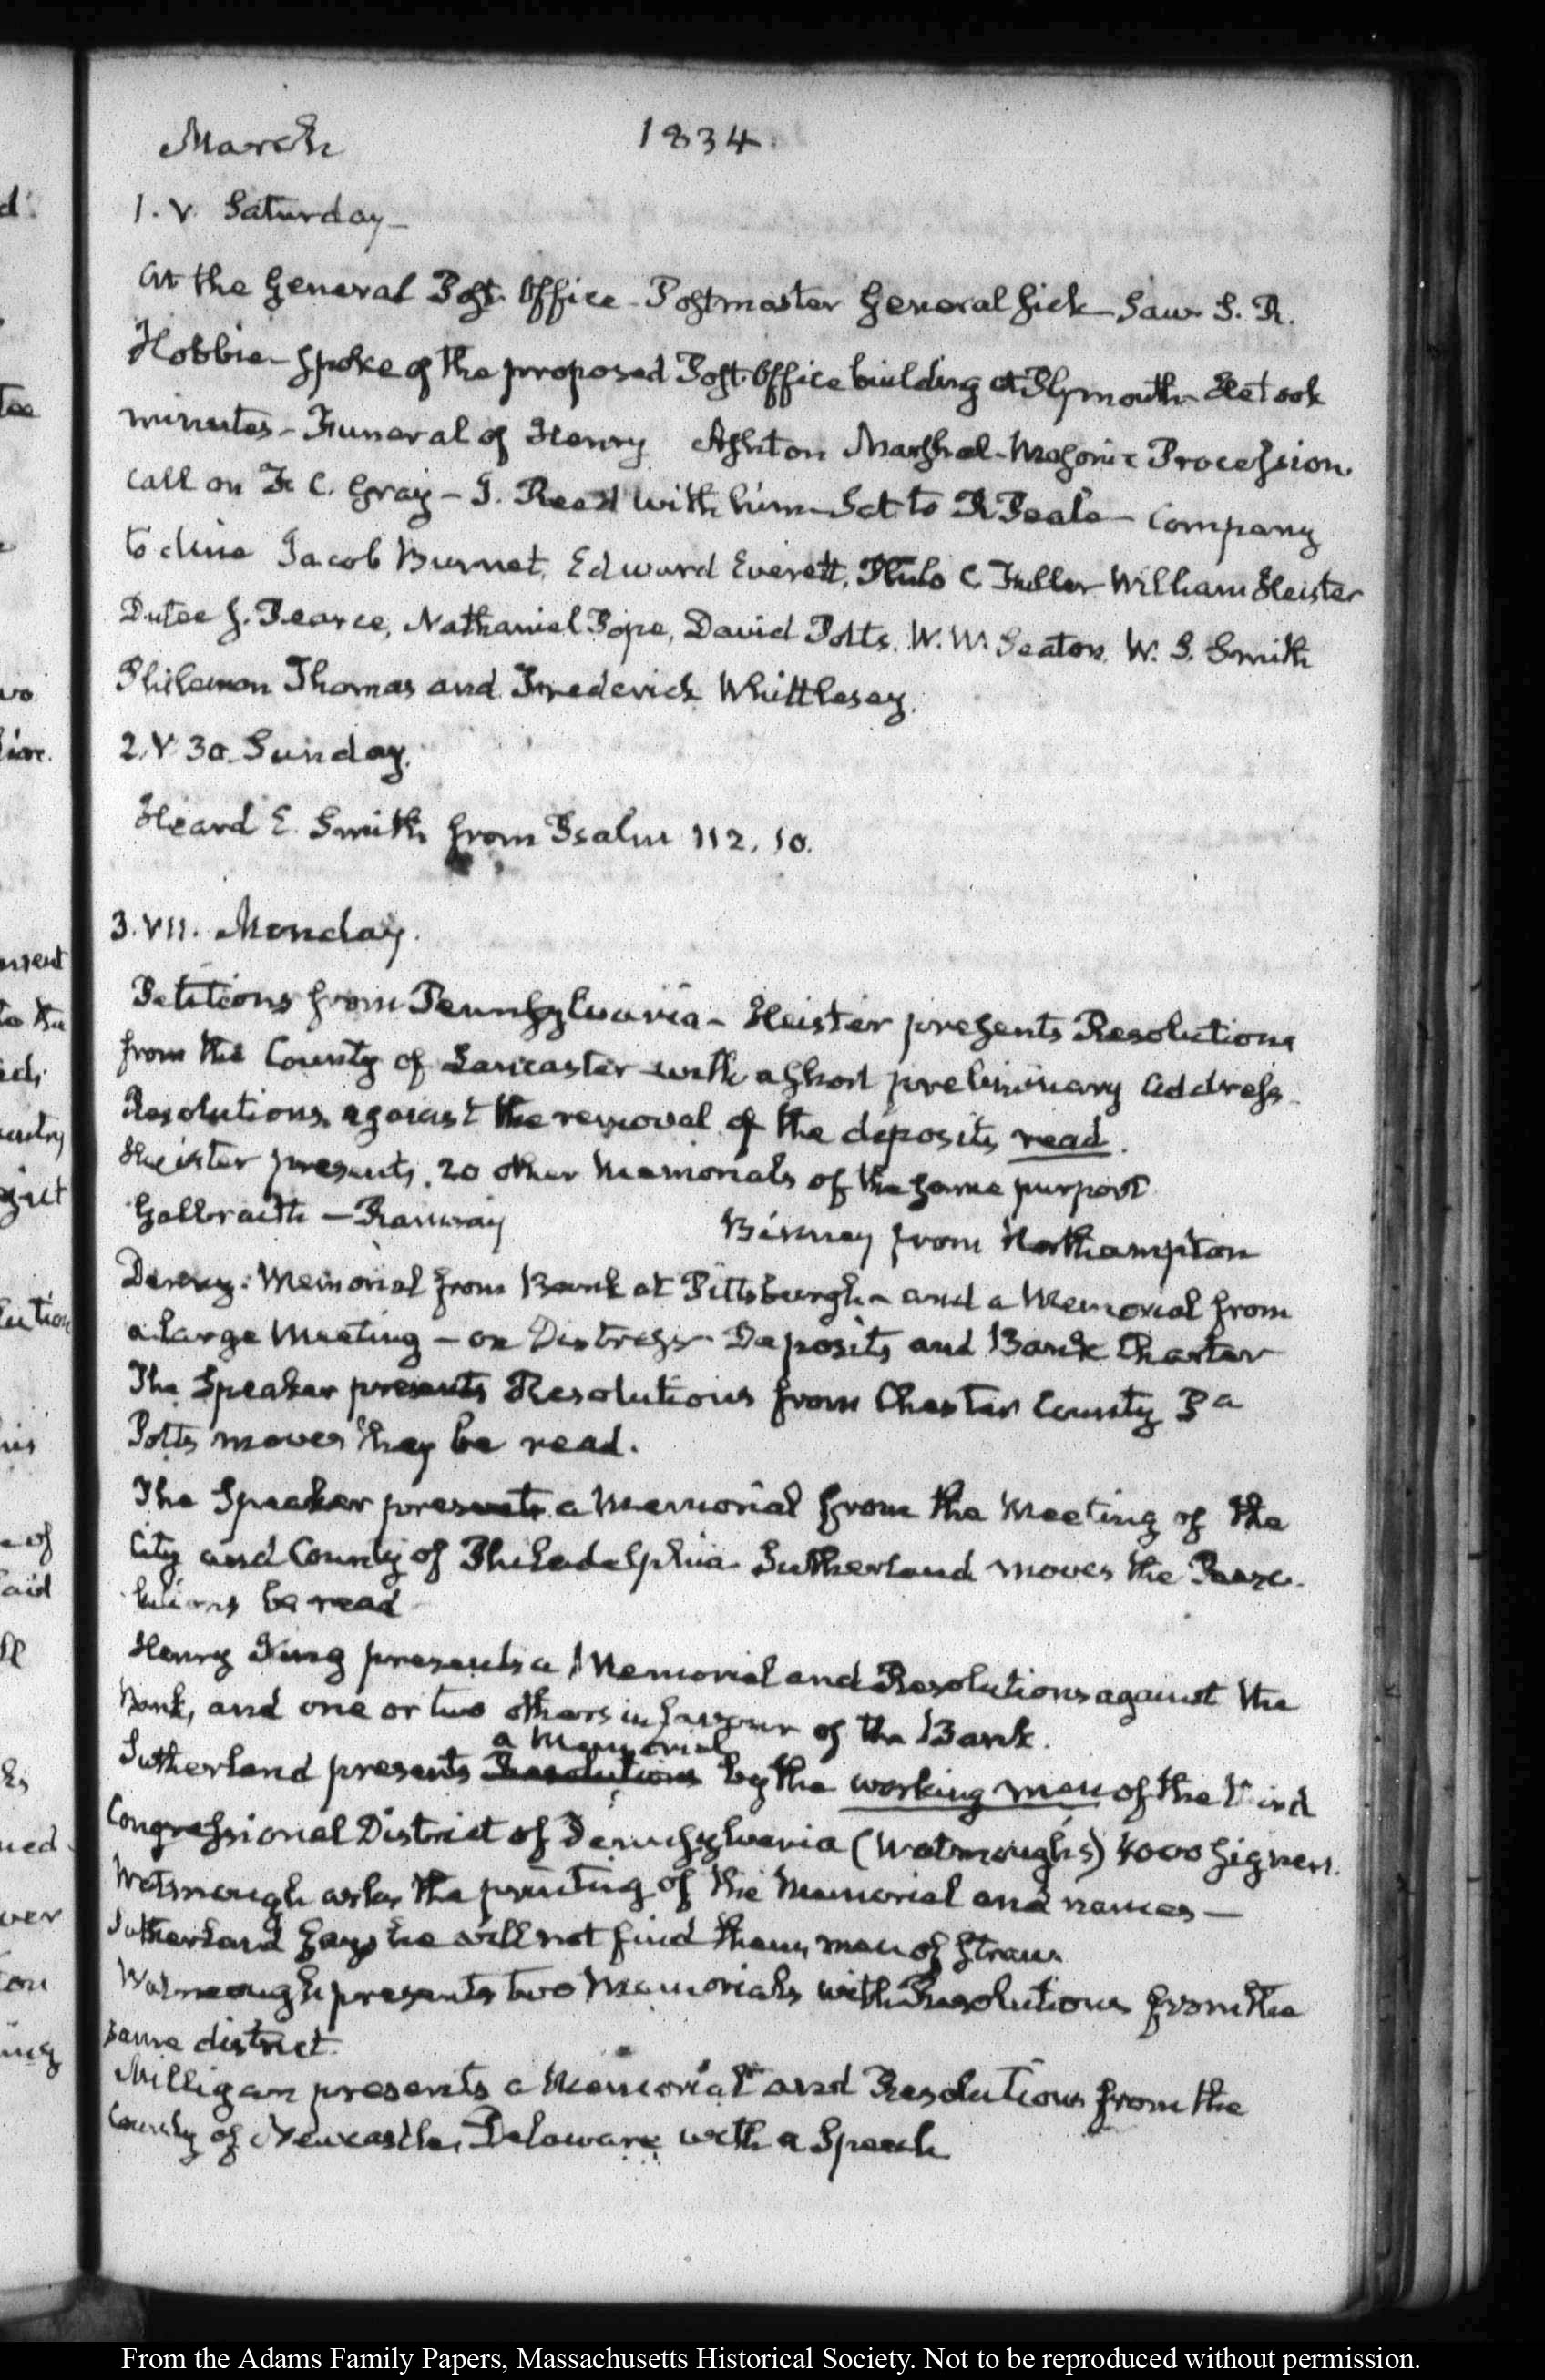 March 1834.
1. V. Saturday—
At the General Post. Office - Postmaster General sick — Saw S. R.
Hobbie - spoke of the proposed Post. Office building at Plymouth - He took
minutes - Funeral of Henry Ashton Marshal - Masonic Procession
call on F. C. Gray - J. Reed with him - Sat to R Peale - Company
to dine Jacob Burnet, Edward Everett, Philo C. Fuller William Heister
Dutee J. Pearce, Nathaniel Pope, David Potts. W. W. Seaton. W. S. Smith
Philemon Thomas and Frederick Whittlesey.
2. V. 30. Sunday.
Heard E. Smith from Psalm 112. 10.
3. VII. Monday.
Petitions from Pennsylvania - Heister presents Resolutions
from the County of Lancaster with a short preliminary address.
Resolutions against the removal of the deposits read.
Heister presents. 20 other Memorials of the same purport
Galbraith — Ramsay Binney from Northampton
Denny. Memorial from Bank at Pittsburgh - and a Memorial from
a large Meeting - on Distress - Deposits and Bank Charter
The Speaker presents Resolutions from Chester County Pa
Potts moves they be read.
The Speaker presents a Memorial from the Meeting of the
City and County of Philadelphia Sutherland moves the Reso-
lutions be read
Henry King presents a Memorial and Resolutions against the
Bank, and one or two others in favour of the Bank.
a Memorial
Sutherland presents Resolutions by the working men of the third
Congressional District of Pennsylvania (Watmough's) 4000 signers.
Watmough asks the printing of the Memorial and names —
Sutherland says he will not find them men of straw
Watmough presents two Memorials with Resolutions from the
same district.
Milligan presents a Memorial and Resolutions from the
County of Newcastle, Delaware with a Speech
From the Adams Family Papers, Massachusetts Historical Society. Not to be reproduced without permission.